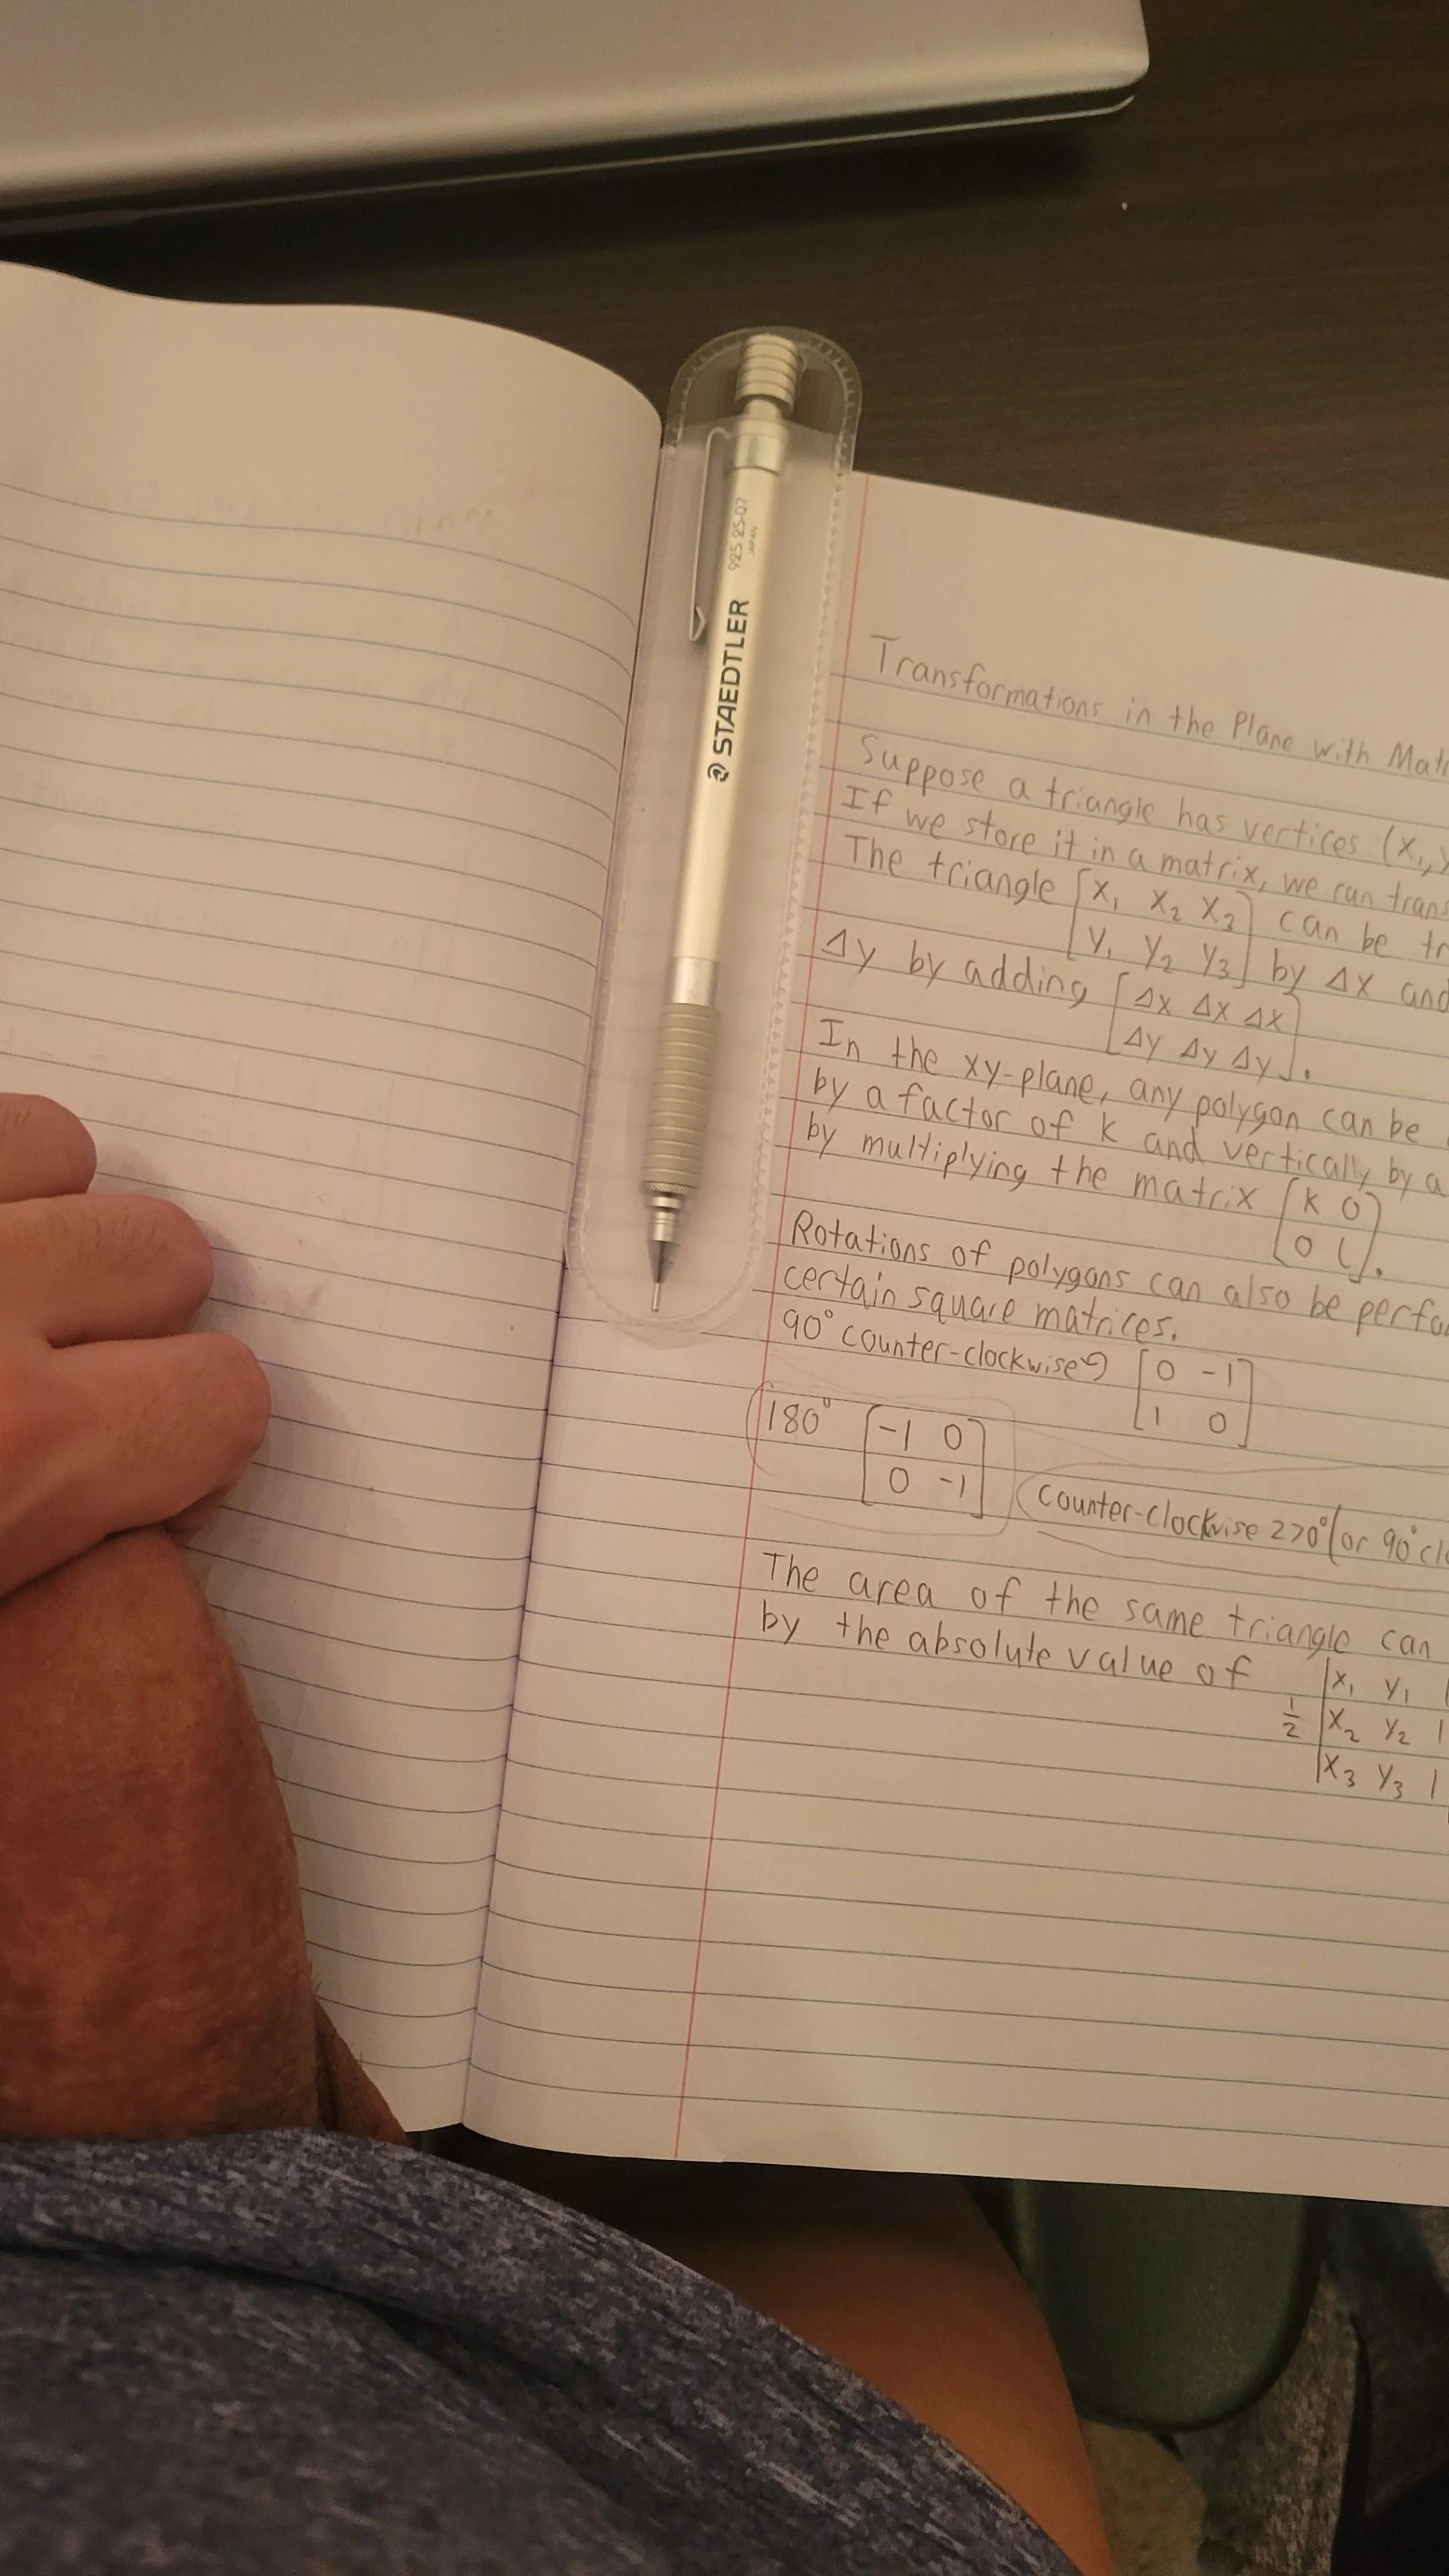 STAEDTLER 925 25-07
JAPAN
Transformations in the Plane with Matr
Suppose a triangle has vertices (x₁,y
If we store it in a matrix, we can trans
The triangle [x₁ x₂ x₃ can be tr
y₁ y₂ y₃] by Δx and
Δy by adding [Δx Δx Δx
Δy Δy Δy].
In the xy-plane, any polygon can be
by a factor of k and vertically by a
by multiplying the matrix [k 0
0 l].
Rotations of polygons can also be perfo
certain square matrices.
90° counter-clockwise [0 -1
1 0]
180° [-1 0
0 -1]
counter-clockwise 270° (or 90° clo
The area of the same triangle can
by the absolute value of
1/2 |x₁ y₁ 1
x₂ y₂ 1
x₃ y₃ 1